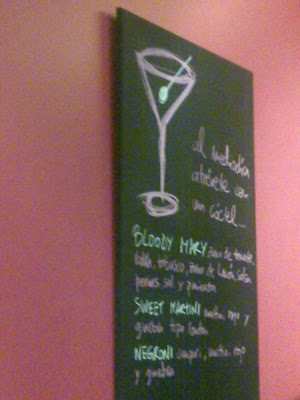 al mediodía
atrévete con
un cóctel...
BLOODY MARY zumo de tomate,
vodka, tabasco, zumo de limón, salsa
perrins, sal y pimienta
SWEET MARTINI martini rojo y
ginebra tipo london
NEGRONI campari, martini rojo
y ginebra